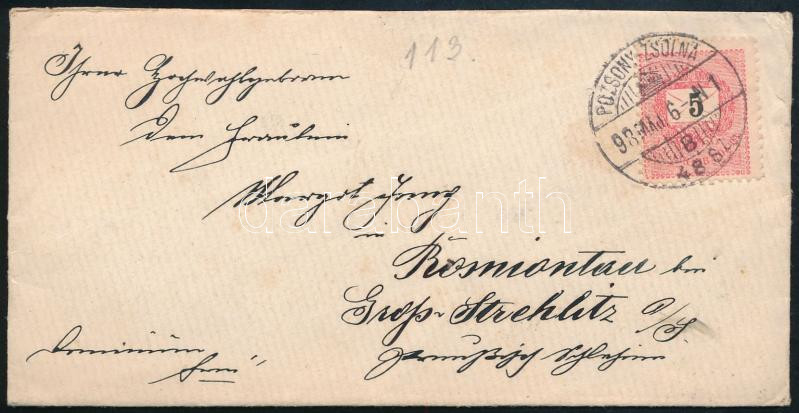 113.
POZSONY-ZSOLNA
98 MÁJ. 6
48 SZ.
5
Ihrer Hochwohlgeboren
dem Fräulein
Margot Jung
in
Rosmontau bei
Groß-Strehlitz O/S.
Preußisch Schlesien
Dominium
darabanth